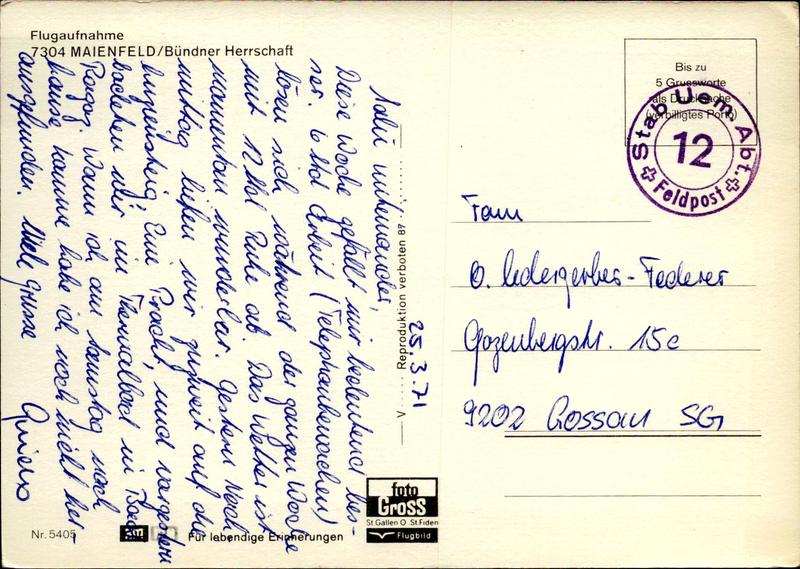 Flugaufnahme
7304 MAIENFELD/Bündner Herrschaft
Salü mitenander,
Diese Woche gefällt mir bedeutend bes-
ser. 6 Std Arbeit
lösen sich während der ganzen Woche
mit 12 Std Ruhe ab. Das Wetter ist
momentan wunderbar. Gestern Nach-
mittag liefen wir zu zweit auf die
Luziensteig; Eine Pracht, und vorgestern
badeten wir im Thermalbad in Bad
Ragaz. Wann ich am Samstag nach
hause komme habe ich noch nicht her-
ausgefunden. Viele Grüsse
25.3.71
V Reproduktion verboten 89
Nr. 5405
Für lebendige Erinnerungen
foto
Gross
St.Gallen O St.Fiden
Flugbild
Bis zu
5 Grussworte
als Drucksache
(verbilligtes Porto)
Stab Uem. Abt.
12
Feldpost
Fam
O. Ledergerber-Federer
Gozenbergstr. 15c
9202 Gossau SG